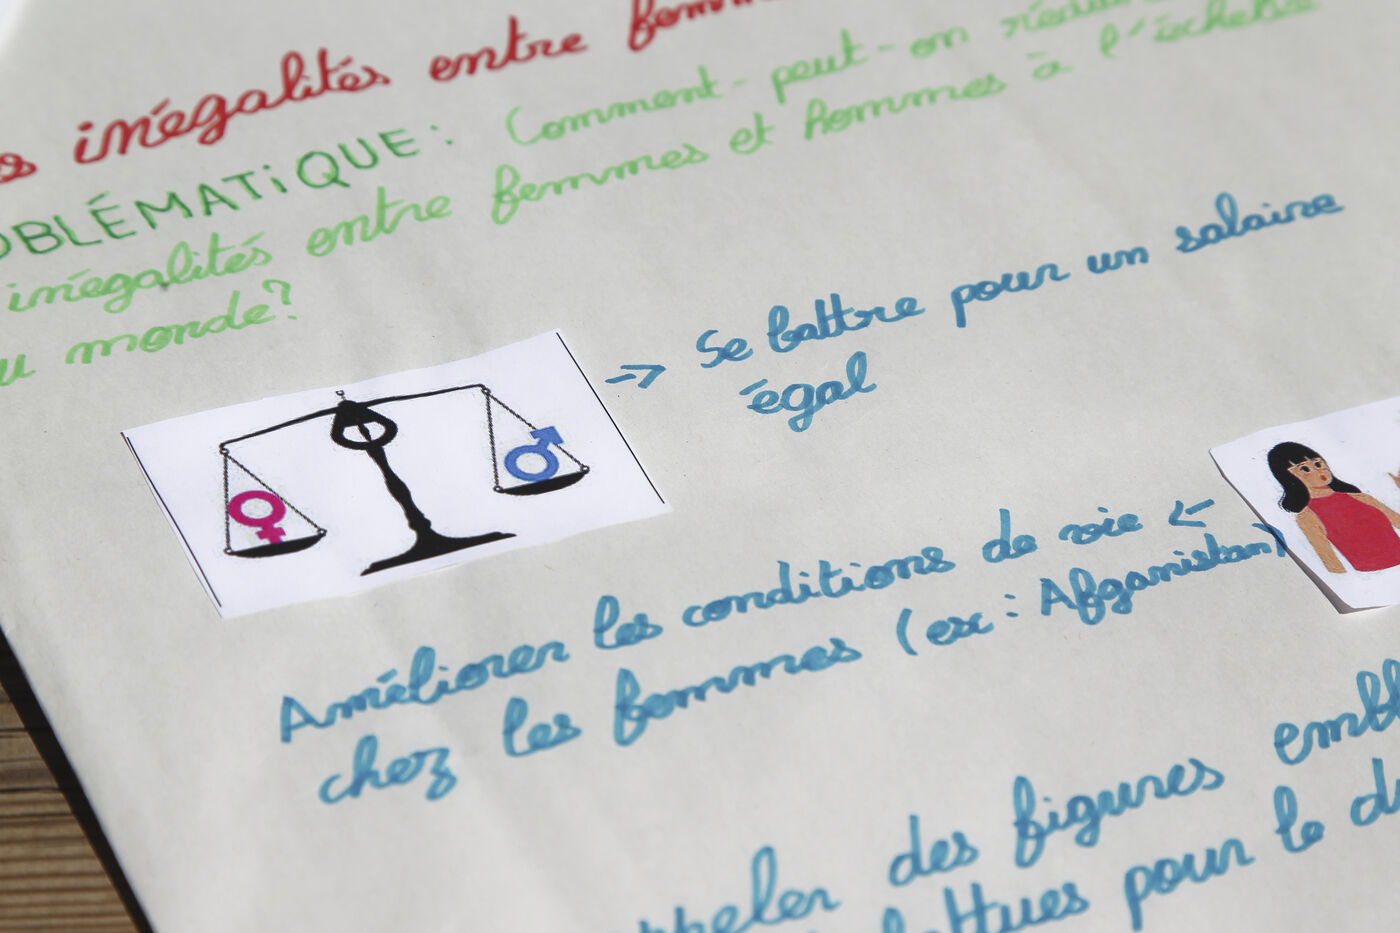 inégalités entre
PROBLÉMATIQUE : Comment-peut-on
inégalités entre femmes et hommes à l'échelle
monde?
-> Se battre pour un salaire
égal
Améliorer les conditions de vie <-
chez les femmes (ex : Afganistan)
des figures
pour le